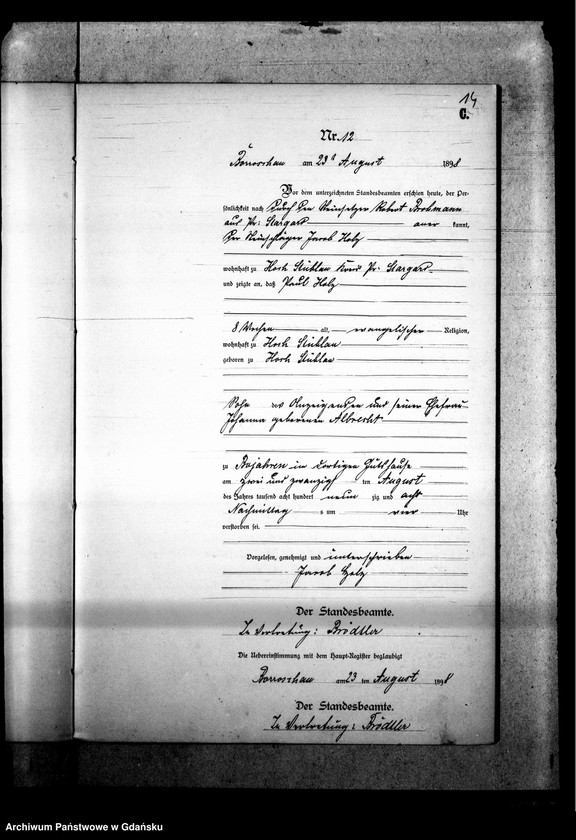 14
C.
Nr. 12
Borroschau am 23t August 1898
Vor dem unterzeichneten Standesbeamten erschien heute, der Per-
sönlichkeit nach durch den Steinsetzer Robert Brohmann
aus Pr: Stargard aner kannt,
der Steinschläger Jacob Holz
wohnhaft zu Hoch Stüblau Kreis Pr: Stargard
und zeigte an, daß Paul Holz
8 Wochen alt, evangelischer Religion,
wohnhaft zu Hoch Stüblau
geboren zu Hoch Stüblau
Sohn des Anzeigenden und seiner Ehefrau
Johanna geborenen Albrecht
zu Bojahren im dortigen Gutshause
am zwei und zwanzigsten August
des Jahres tausend acht hundert neun zig und acht
Nachmittag s um vier Uhr
verstorben sei.
Vorgelesen, genehmigt und unterschrieben
Jacob Holz
Der Standesbeamte.
In Vertretung:
Die Uebereinstimmung mit dem Haupt-Register beglaubigt
Borroschau am 23 ten August 1898
Der Standesbeamte.
In Vertretung:
Archiwum Państwowe w Gdańsku